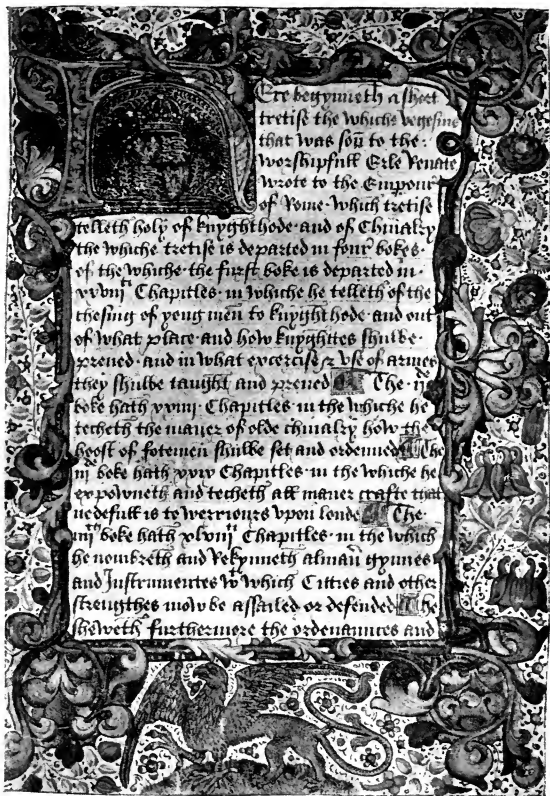 Ere begynneth a short
tretise the whiche vegesius
that was sou̅ to the·
worshipfull Erle Renate
wrote to the Emp̱our
of Rome· which tretise
telleth holy of knyghthode· and of Chiualry
the whiche tretise is departed in four bokes·
of the whiche· the furst boke is departed in·
xxviijti Chapitles· in whiche he telleth of the
chesing of yong men to knyghthode· and out
of what place· and how knyghttes shulbe·
preued· and in what excercise & vse of armes
they shulbe taught and preued The· ijde
boke hath xxiiij· Chapitles· in the whiche he
techeth the maner of olde chiualry how the
hoost of fotemen shulbe set and ordenned The
iijde boke hath xxvj Chapitles· in the whiche he
expowneth and techeth all maner crafte that
nedefull is to werriours vpon londe The·
iiijth boke hath xlviijti Chapitles· in the which
he nombreth and Rekynneth alman̄ gynnes
and Instrumentes wt which Citties and other
strengthes mow be assailed or defended The
sheweth furthermore the ordenaunces and